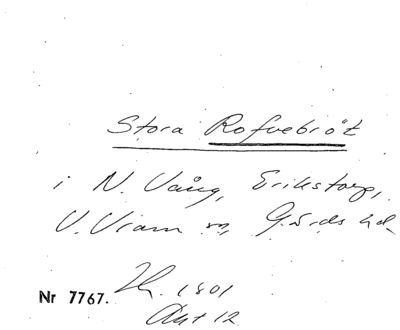 Stora Rofvebröt
i N. Vång, Erikstorp,
V. Vram sn, Gärds hd.
Nr 7767. 1801
Akt 12